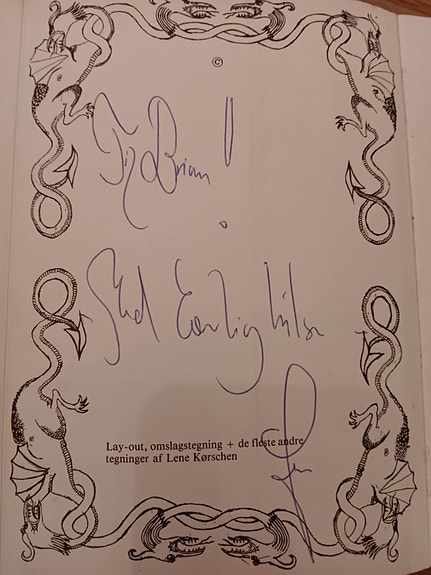 ©
Til Brian!
Med Kærlig hilsen
Lay-out, omslagstegning + de fleste andre
tegninger af Lene Kørschen